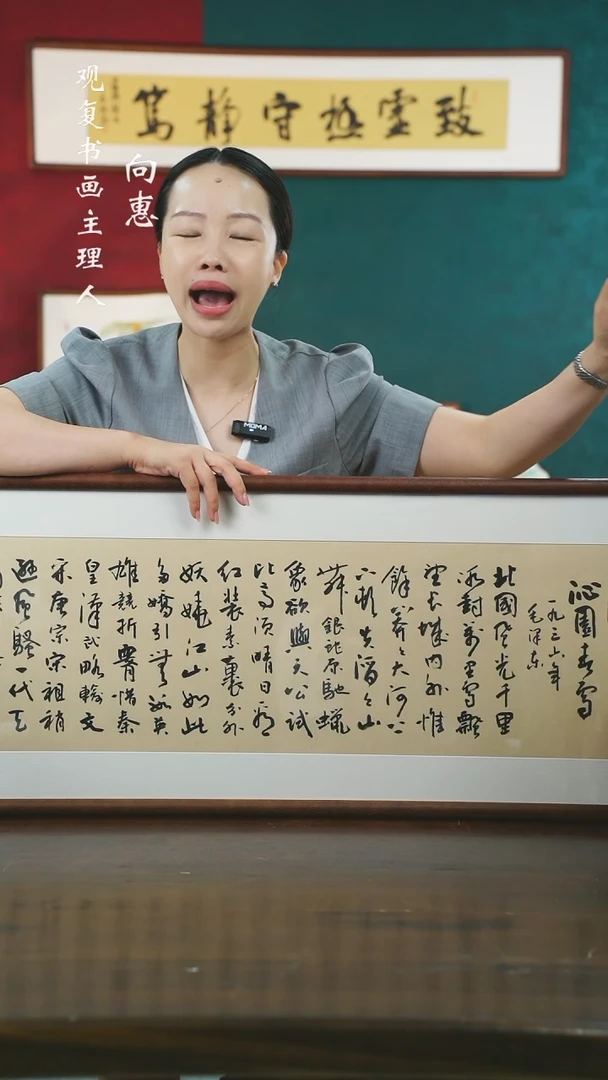 致虚極守静篤
观复书画主理人
向惠
MOMA
沁園春雪
一九三六年
毛泽东
北國风光千里
冰封萬里雪飘
望长城内外惟
餘莽々大河上
下頓失滔々山
舞銀蛇原馳蠟
象欲與天公試
比高須晴日看
红装素裹分外
妖娆江山如此
多嬌引無數英
雄競折腰惜秦
皇漢武略輸文
采唐宗宋祖稍
遜风騷一代天